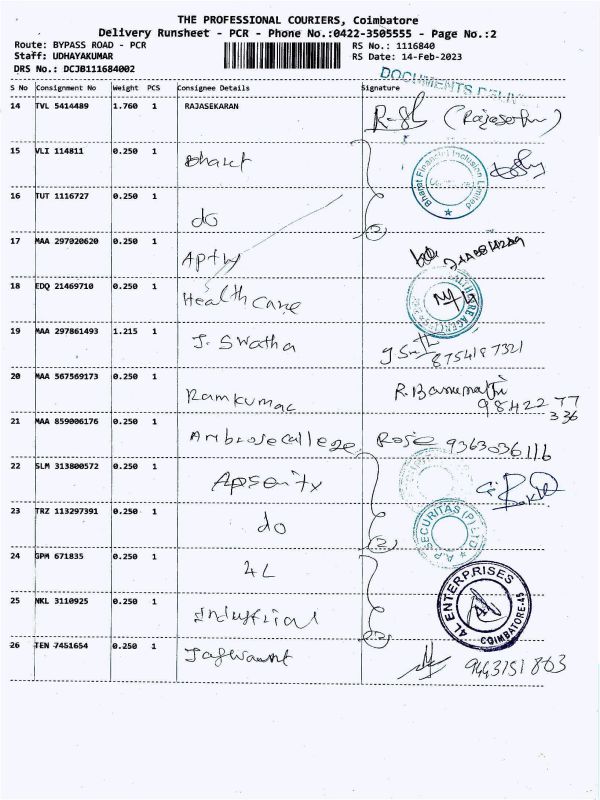 THE PROFESSIONAL COURIERS, Coimbatore
Delivery Runsheet - PCR - Phone No.:0422-3505555 - Page No.:2
Route: BYPASS ROAD - PCR
RS No.: 1116840
Staff: UDHAYAKUMAR
RS Date: 14-Feb-2023
DRS No.: DCJB111684002
DOCUMENTS
S No Consignment No Weight PCS Consignee Details Signature
14 TVL 5414489 1.760 1 RAJASEKARAN
15 VLI 114811 0.250 1 Bharat
Bharat Financial Inclusion Limited
16 TUT 1116727 0.250 1 do
(2)
17 MAA 297020620 0.250 1
18 EDQ 21469710 0.250 1 Health Care
19 MAA 297861493 1.215 1 J. Swatha
8754187321
20 MAA 567569173 0.250 1 Ramkumar
R. Banumathi
98422 77
336
21 MAA 859006176 0.250 1 Ambrose college Rose 9363036116
22 SLM 313800572 0.250 1
23 TRZ 113297391 0.250 1 do
(2)
A.P. SECURITAS (P) LTD
24 GPM 671835 0.250 1 4L
4L ENTERPRISES
COIMBATORE-45
25 NKL 3110925 0.250 1 Industrial
(2)
26 TEN 7451654 0.250 1 Jaswant
9443151863